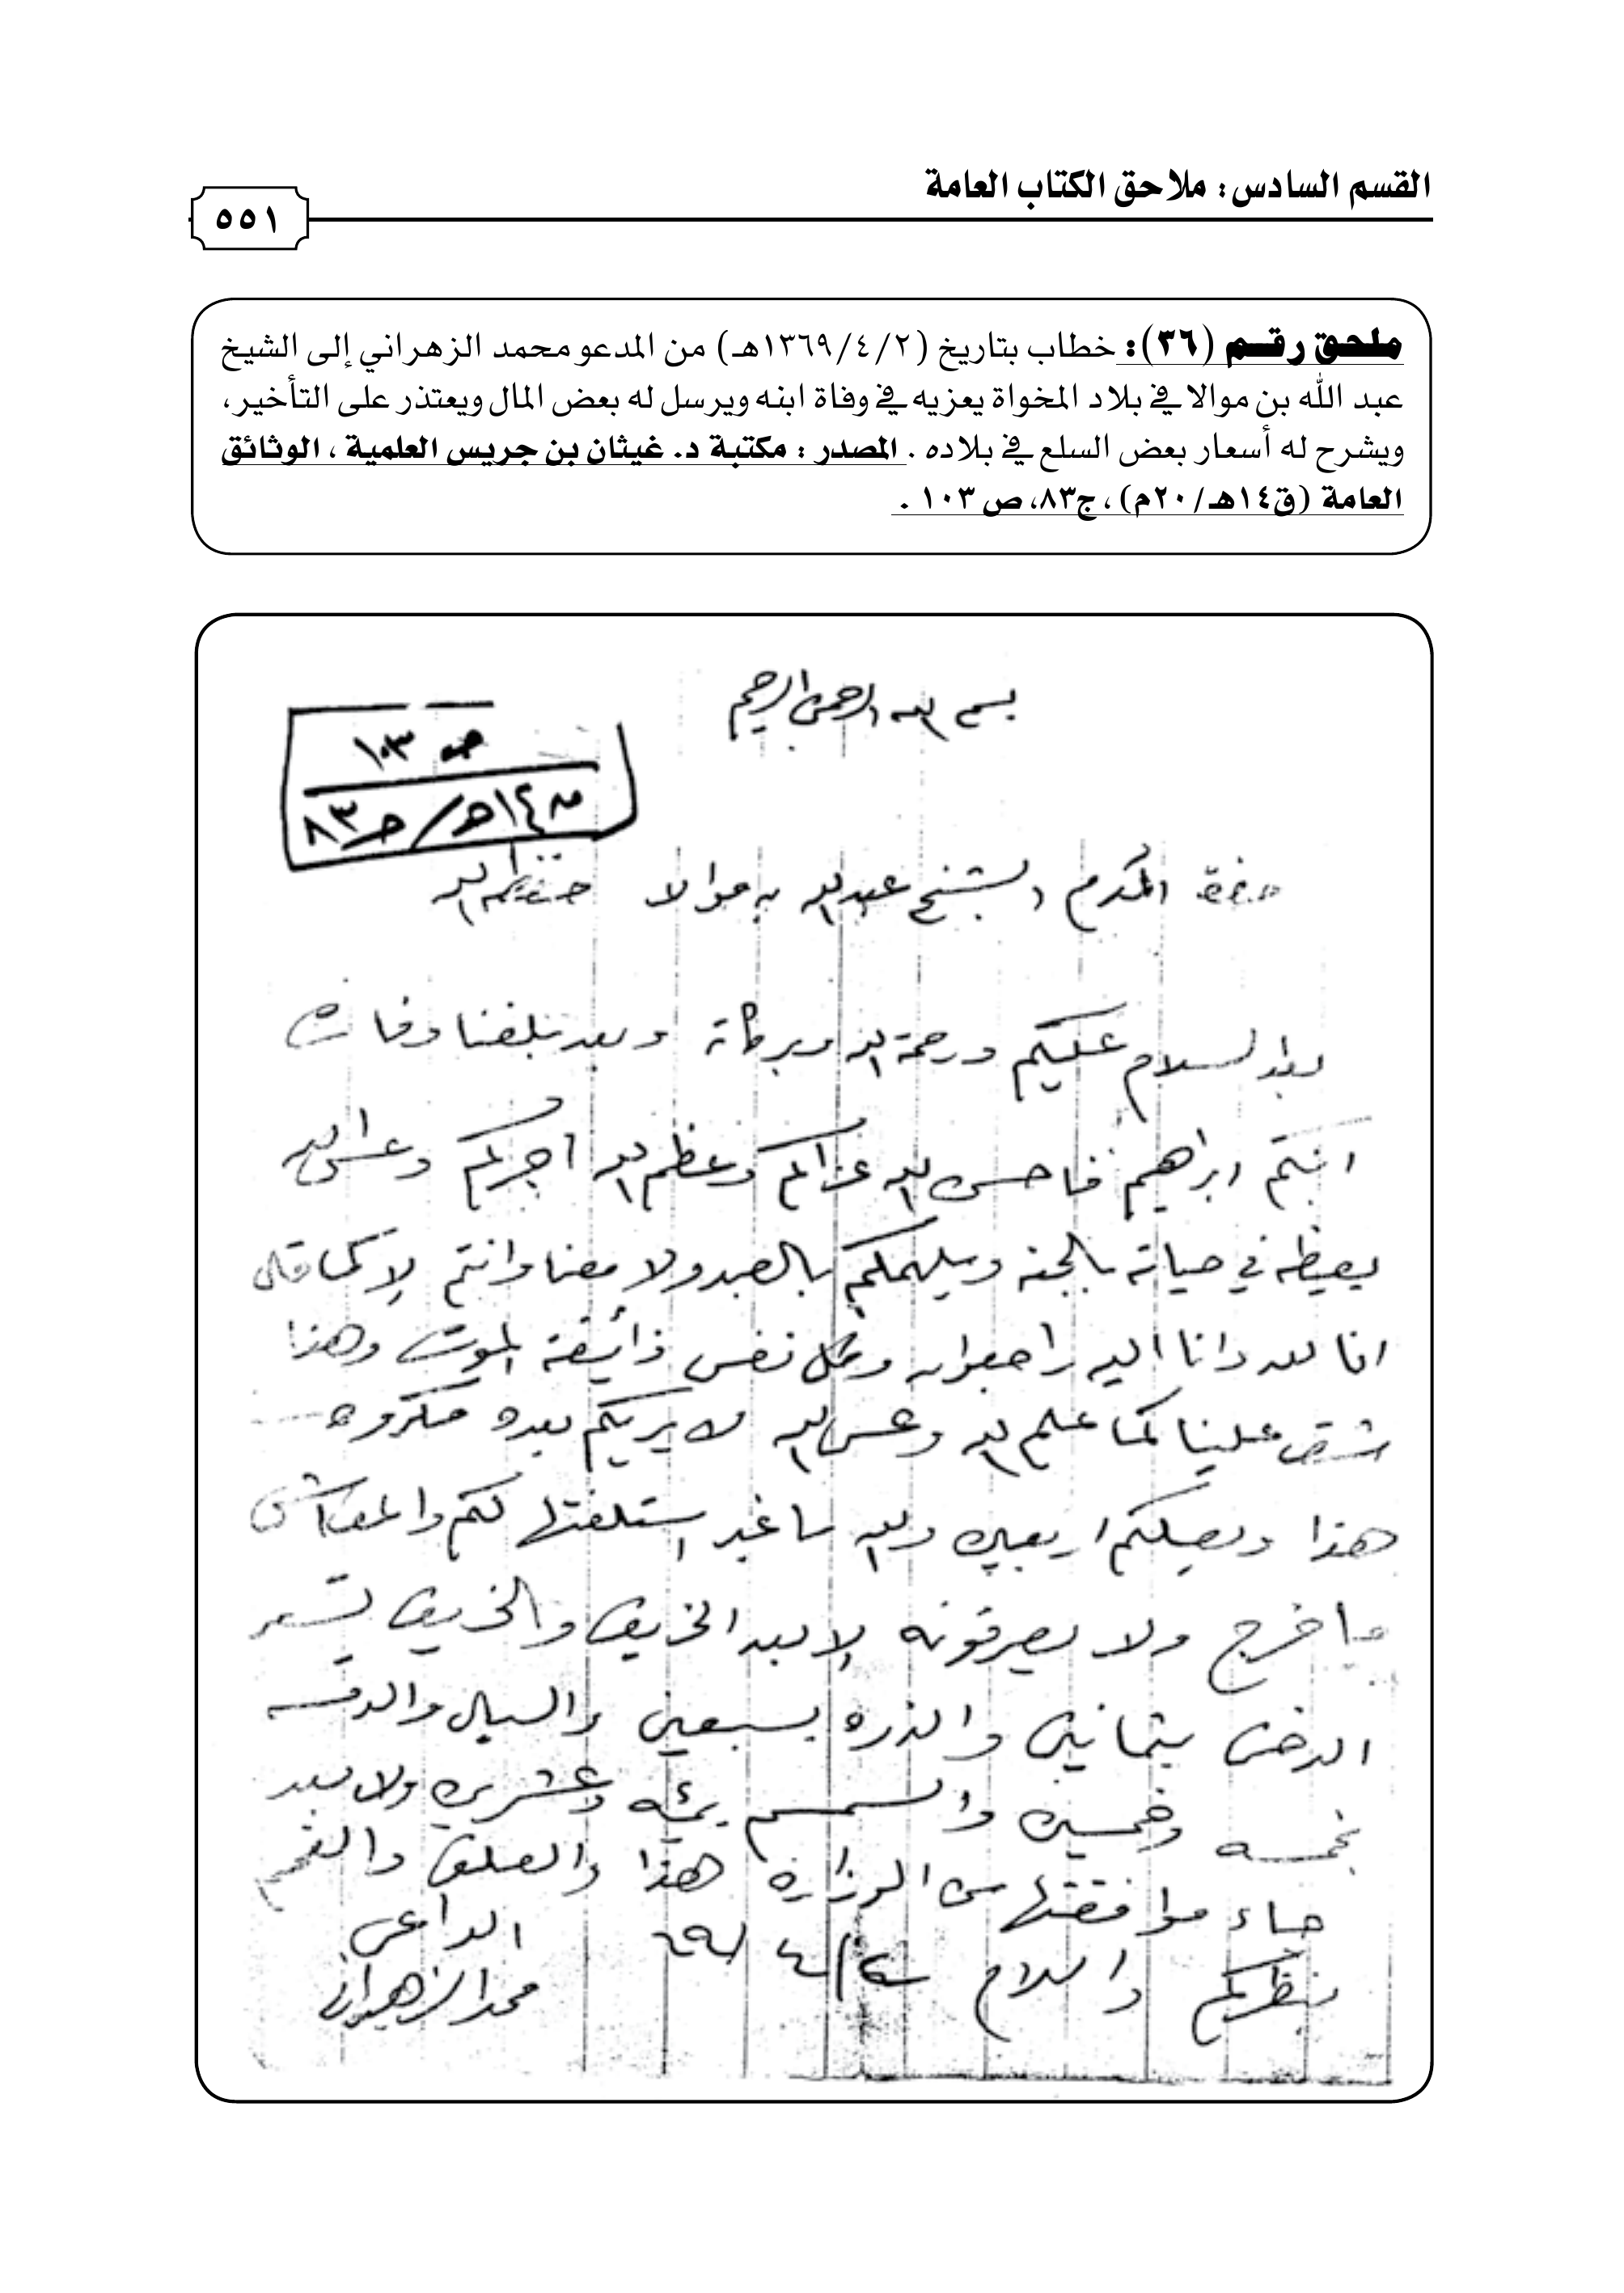 القسم السادس: ملاحق الكتاب العامة
٥٥١
ملحق رقم (٣٦): خطاب بتاريخ (٢/٤/١٣٦٩هـ) من المدعو محمد الزهراني إلى الشيخ
عبد الله بن موالا في بلاد المخواة يعزيه في وفاة ابنه ويرسل له بعض المال ويعتذر على التأخير،
ويشرح له أسعار بعض السلع في بلاده . المصدر : مكتبة د. غيثان بن جريس العلمية ، الوثائق
العامة (ق١٤هـ/٢٠م) ، ج٨٣، ص١٠٣ .
بسم الله الرحمن الرحيم
ص ١٠٣
ق١٤هـ/ج٨٣
المكرم الشيخ عبدالله بن موالا حفظكم الله
بعد السلام عليكم ورحمة الله وبركاته وبعد بلغنا وفات
ابنكم ابراهيم فاحسن الله عزاكم وعظم الله اجركم وعسى الله
يعيظه في حياته بالجنه ويلهمكم بالصبر ولا معنا وانتم الا كما قال
انا لله وانا اليه راجعون وكل نفس ذائقة الموت وهذا
شق علينا كما علم الله وعسى الله لا يريكم بعده مكروه
هذا ويصلكم اربعين والله ما غير استلفتها لكم والمعاش
ما خرج ولا يصرفونه الا بعد الخريف والخريف تسعر
الدخن بثمانين والذره بسبعين والسيال والدقسه
بخمسه وخمسين والسمسم بمئه وعشرين ولا بعد
جاء موافقتها من الوزاره هذا والعلق والغنم
بنظركم والسلام ٢/٤/٦٩
الداعي
محمد الزهراني